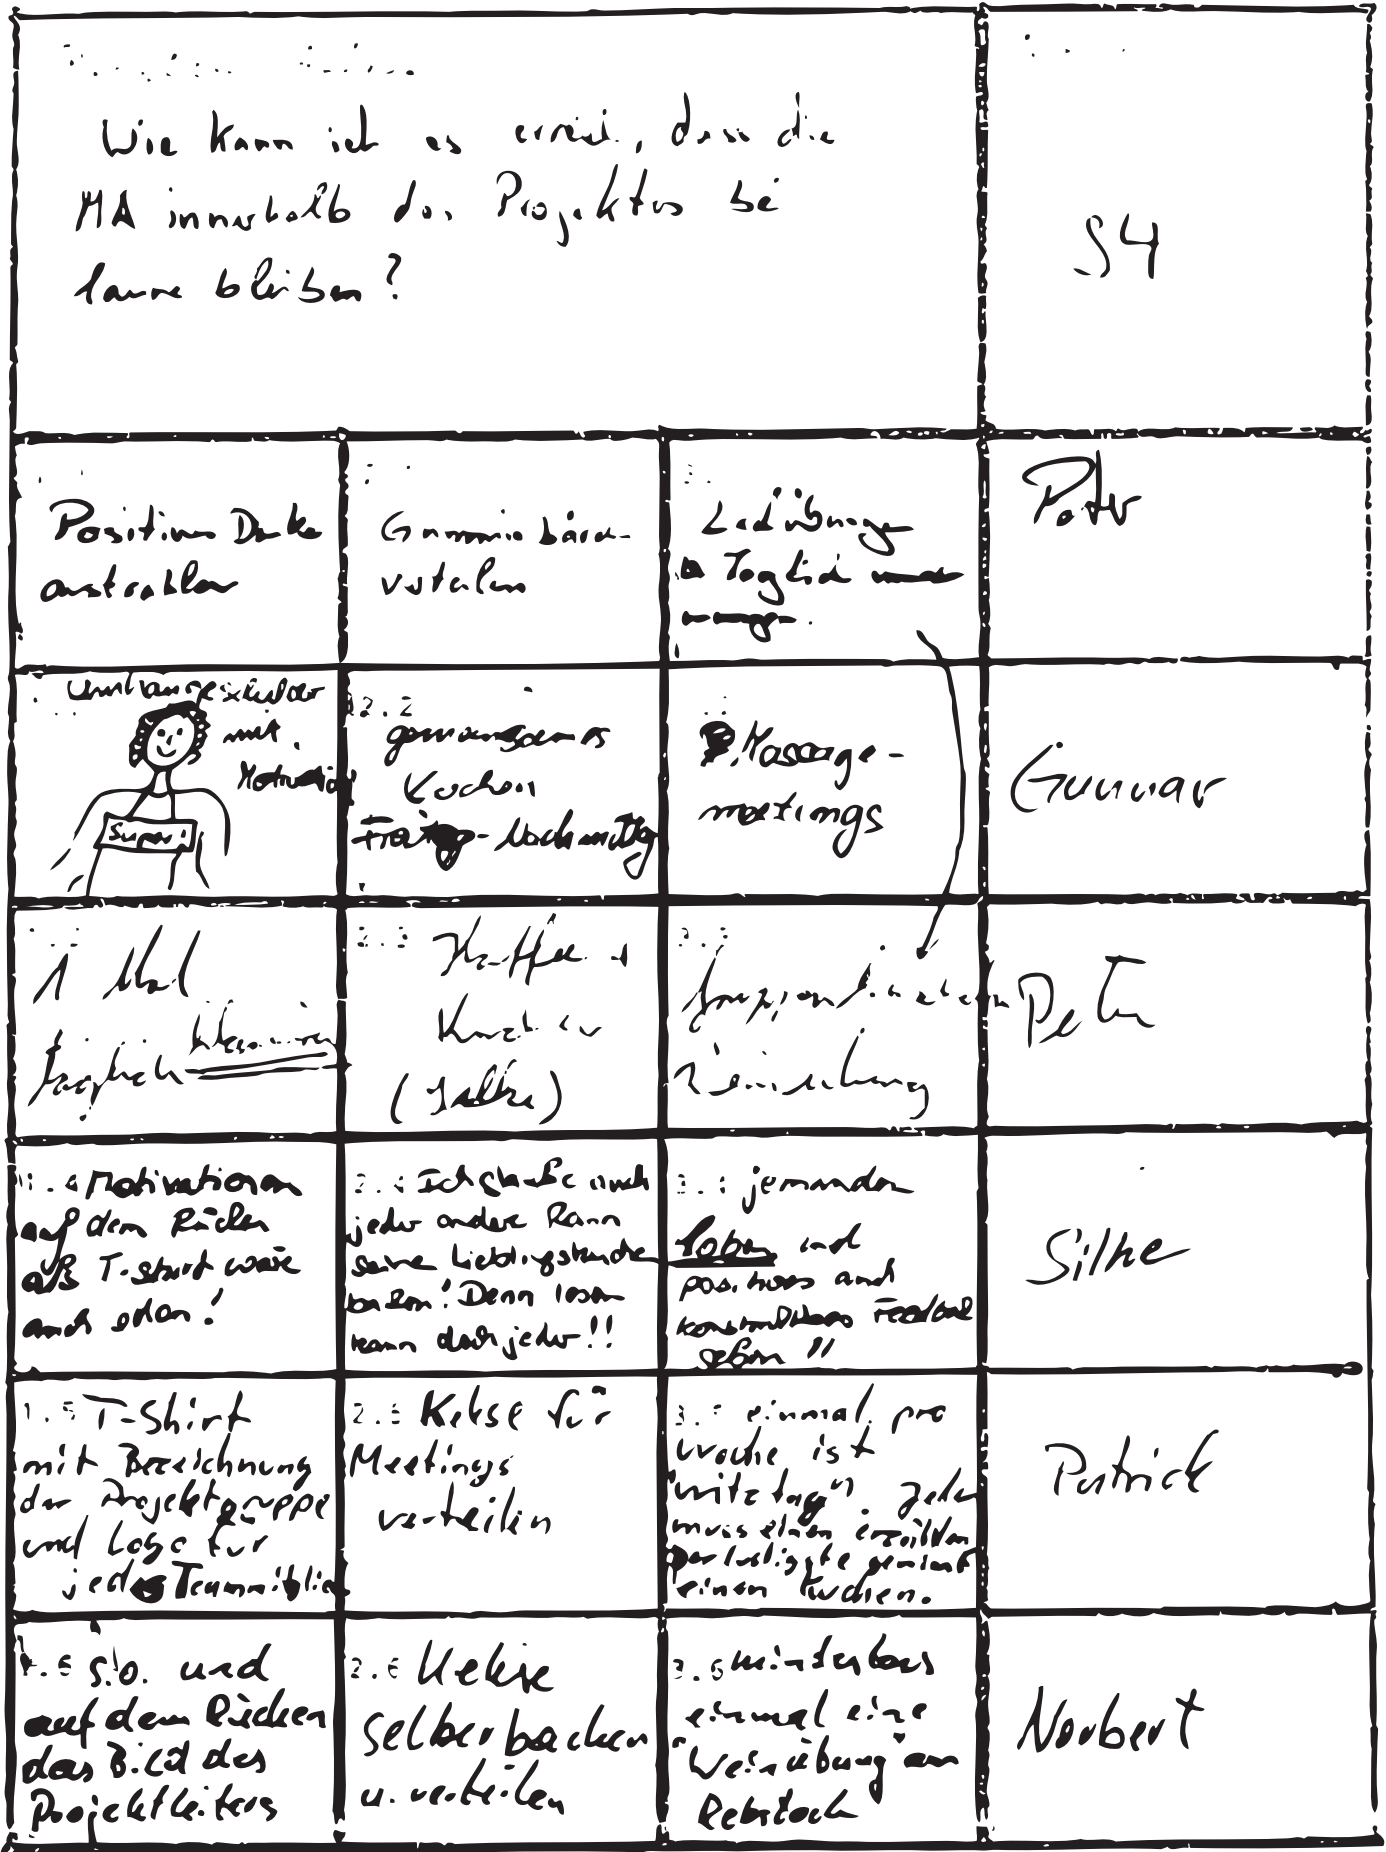 Wie kann ich es erreich., dass die
MA innerhalb des Projektes bei
laune bleiben?
S4
Positives Denken
ausstrahlen
Gummibärch-
verteilen
Täglich
Peter
Umhängeschilder
mit
Motivation
Super!
2.2
gemeinsames
Kuchen
Freitag-Nachmittag
Massage-
meetings
Gunnar
1 Mal
täglich
Kaffee u
Kuchen
Peter
1.4 Motivation
auf dem Rücken
als T-shirt wäre
auch schön!
2.4 Ich glaube auch
jeder andere kann
seine Lieblingskuchen
backen! Denn lesen
kann doch jeder!!
3.4 jemanden
loben und
positives und
konstruktives Feedback
geben!!
Silke
1.5 T-Shirt
mit Bezeichnung
der Projektgruppe
und Logo für
jedes Teammitglied
2.5 Kekse für
Meetings
verteilen
3.5 einmal pro
Woche ist
"Witztag". Jeder
muss einen erzählen
Der lustigste gewinnt
einen Kuchen.
Patrick
1.6 s.o. und
auf dem Rücken
das Bild des
Projektleiters
2.6 Kekse
selber backen
u. verteilen
3.6 mindestens
einmal eine
Weinübung am
Rebstock
Norbert